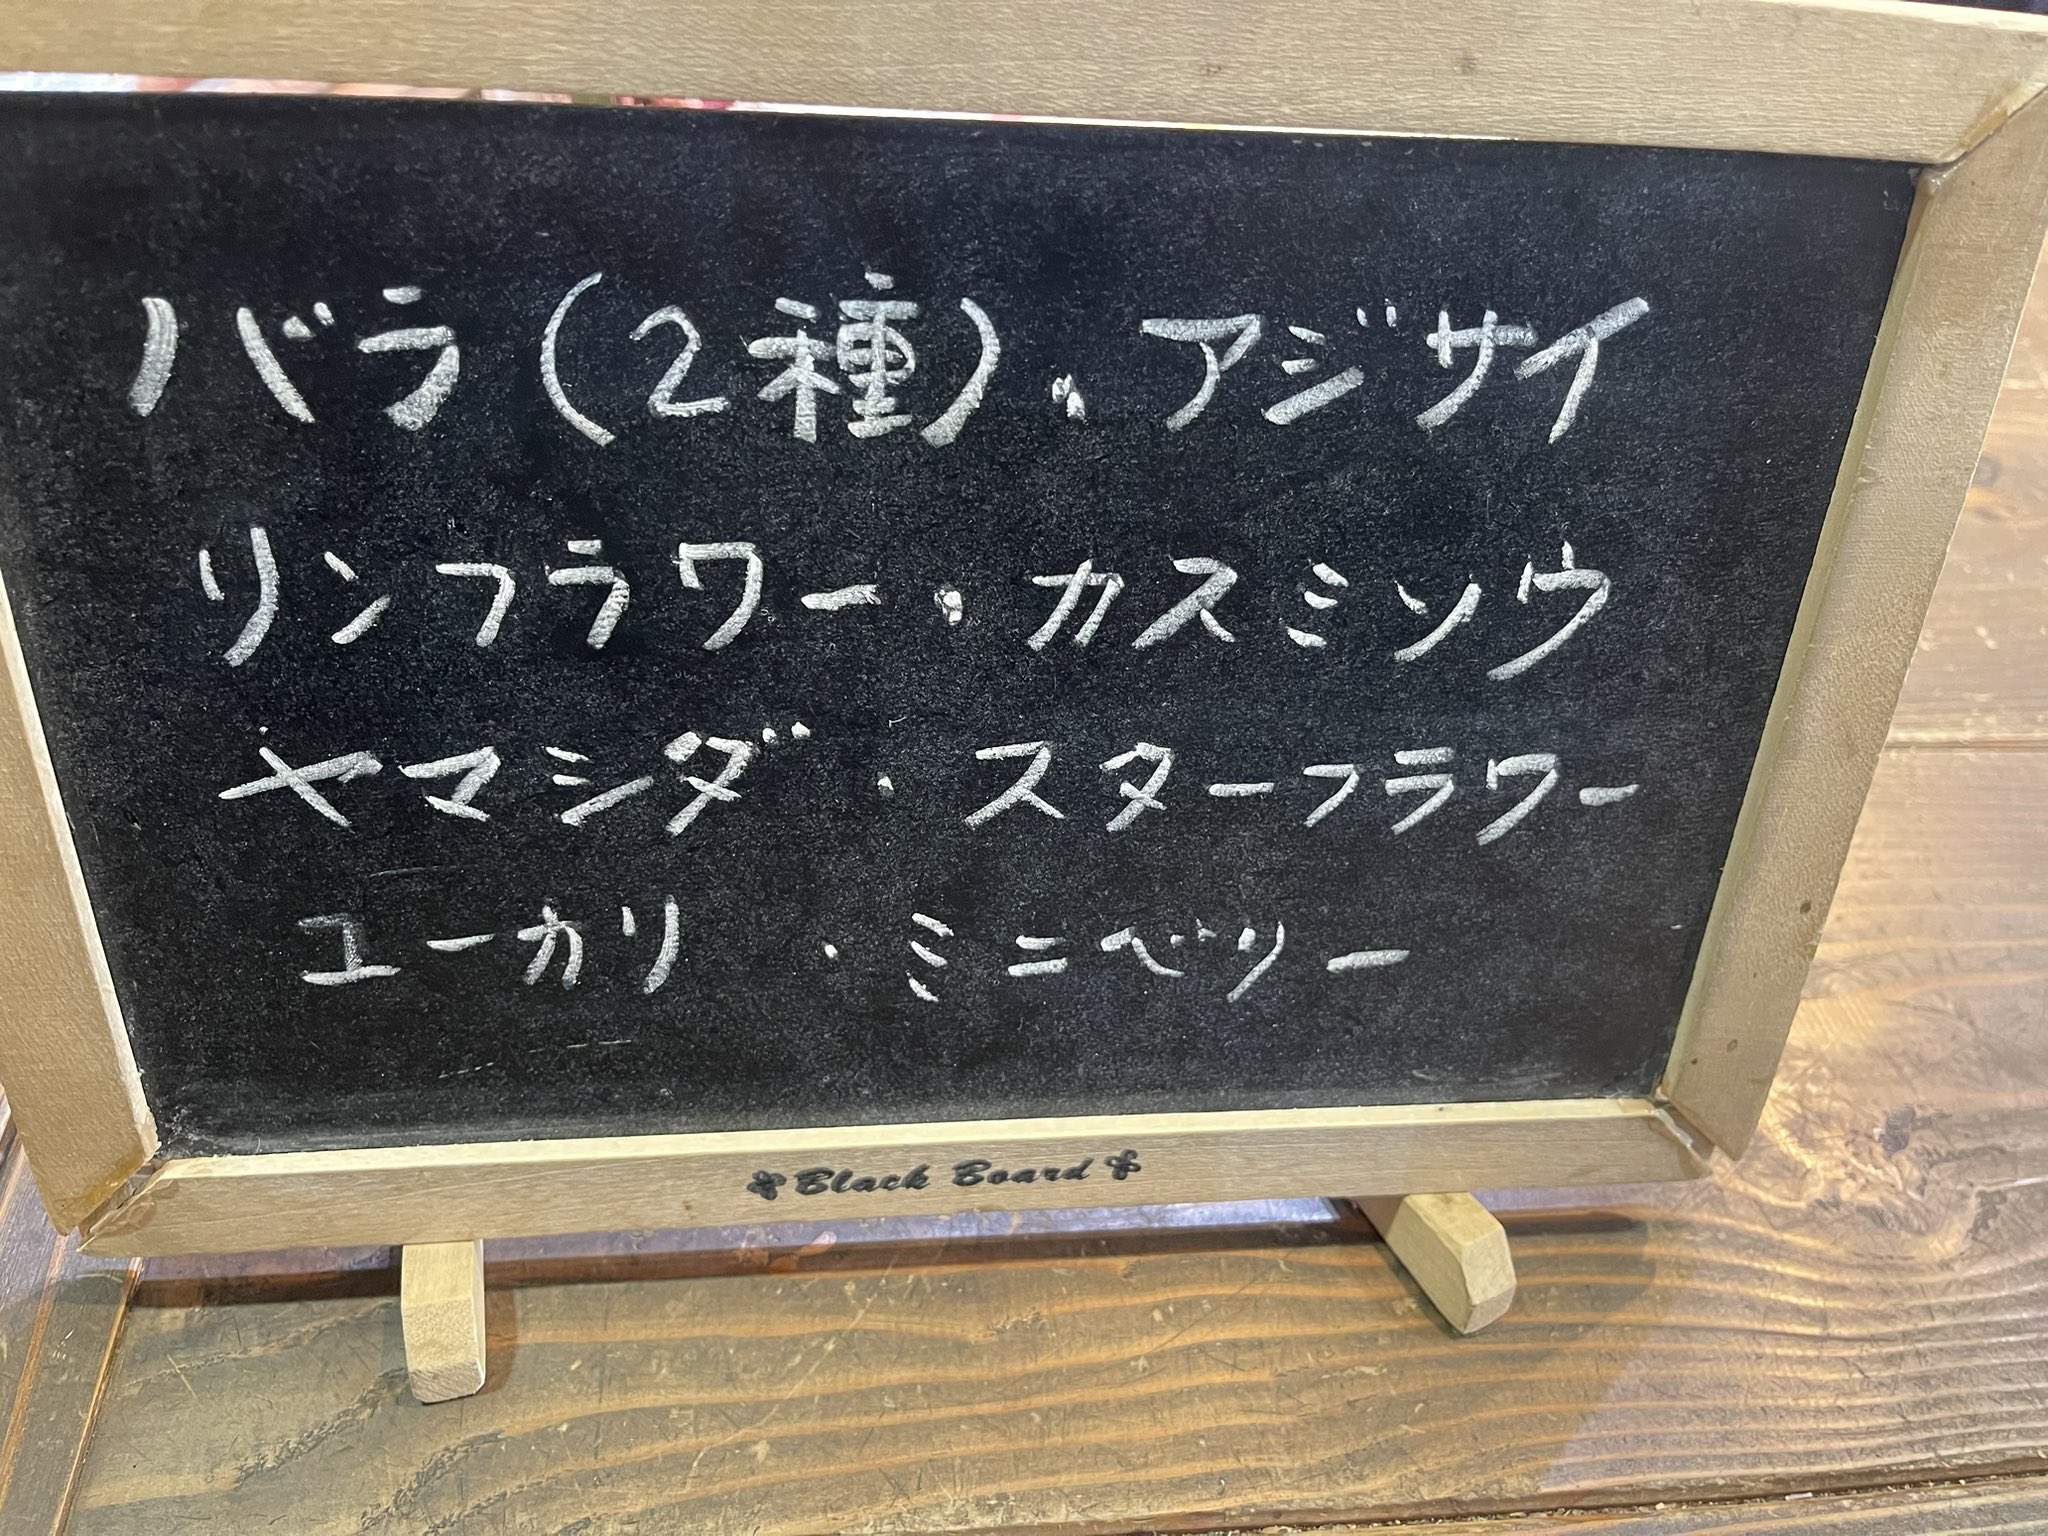 バラ(2種)・アジサイ
リンフラワー・カスミソウ
ヤマシダ・スターフラワー
ユーカリ・ミニベリー
Black Board